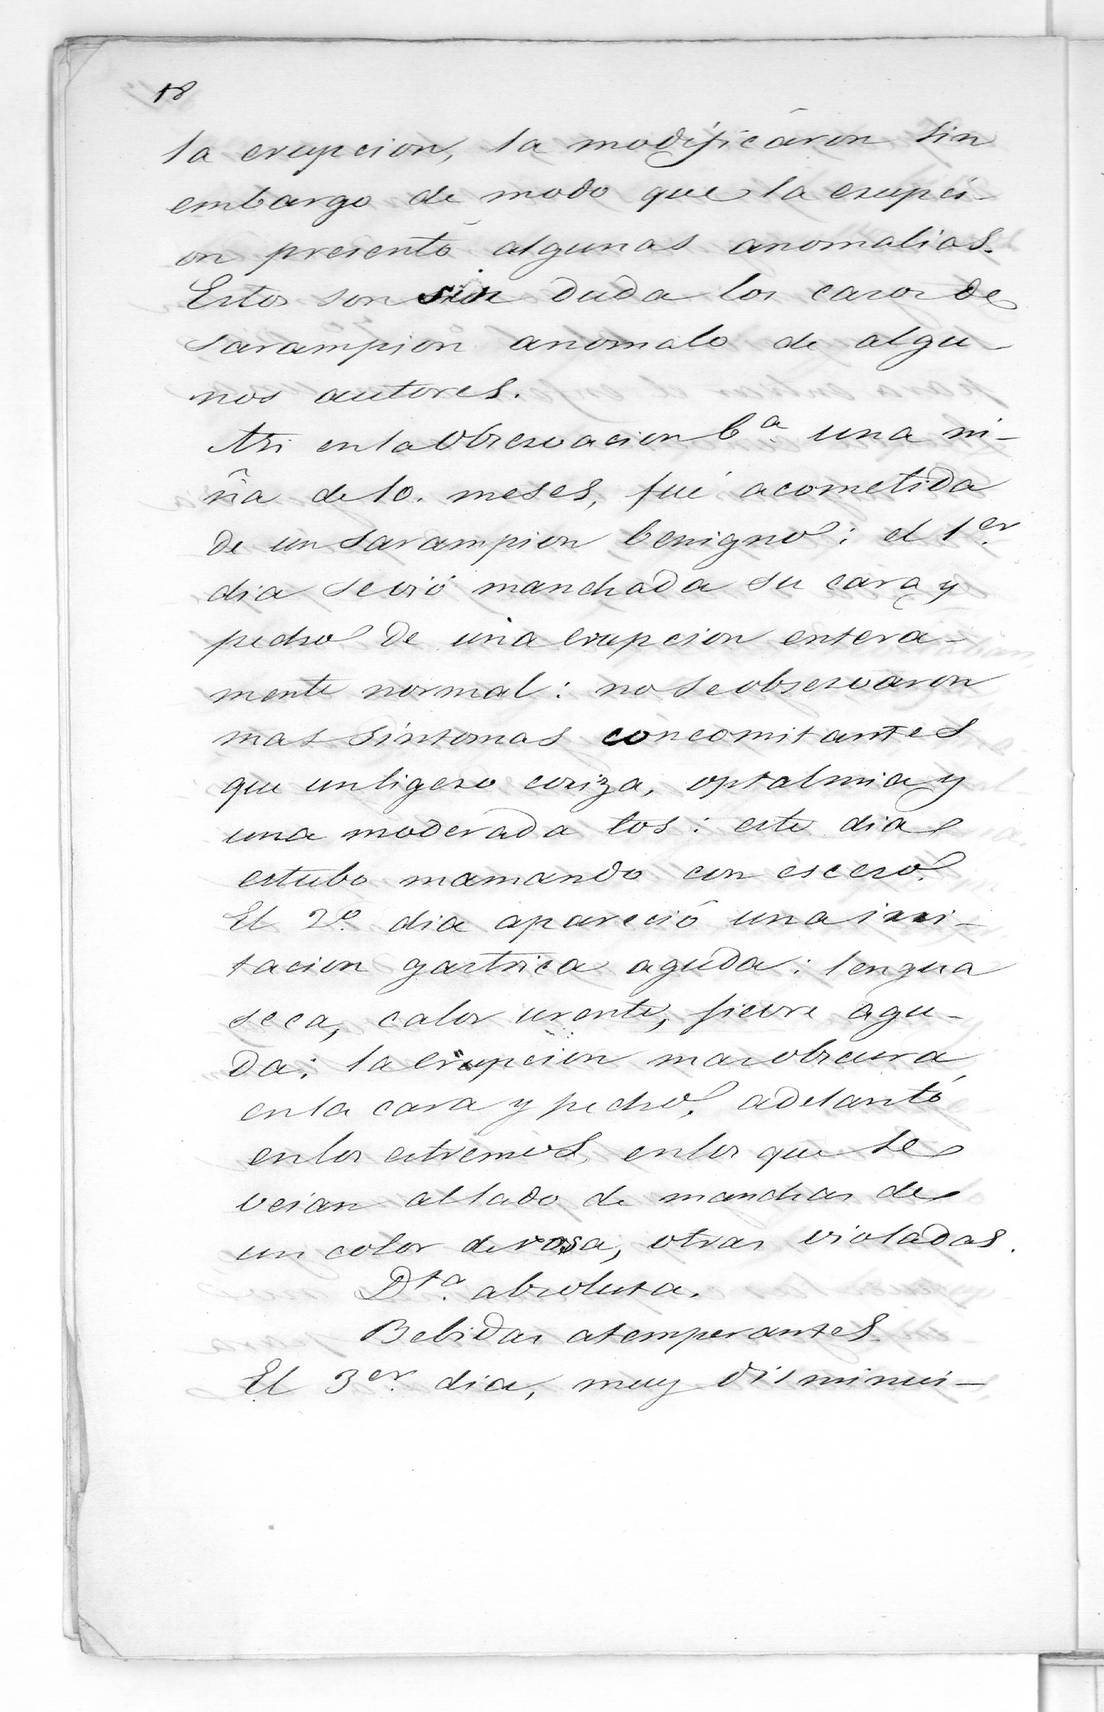 18
la erupcion, la modificáron sin
embargo de modo que la erupci-
on presentó algunas anomalias.
Estos son sin duda los casos de
sarampion anomalo de algu-
nos autores.
Asi en la Observacion 6ª. una ni-
ña de 10. meses, fué acometida
de un sarampion benigno: el 1er.
dia se vió manchada su cara y
pecho de una erupcion entera-
mente normal: no se observaron
mas sintomas concomitantes
que un ligero coriza, optalmia y
una moderada tos: este dia
estubo mamando con esceso.
El 2º. dia apareció una irri-
tacion gastrica aguda: lengua
seca, calor urente, fievre agu-
da: la erupcion mas obscura
en la cara y pecho, adelantó
en los estremos, en los que se
veian al lado de manchas de
un color de rosa, otras violadas.
Dta. absoluta.
Bebidas atemperantes.
El 3er. dia, muy disminui-